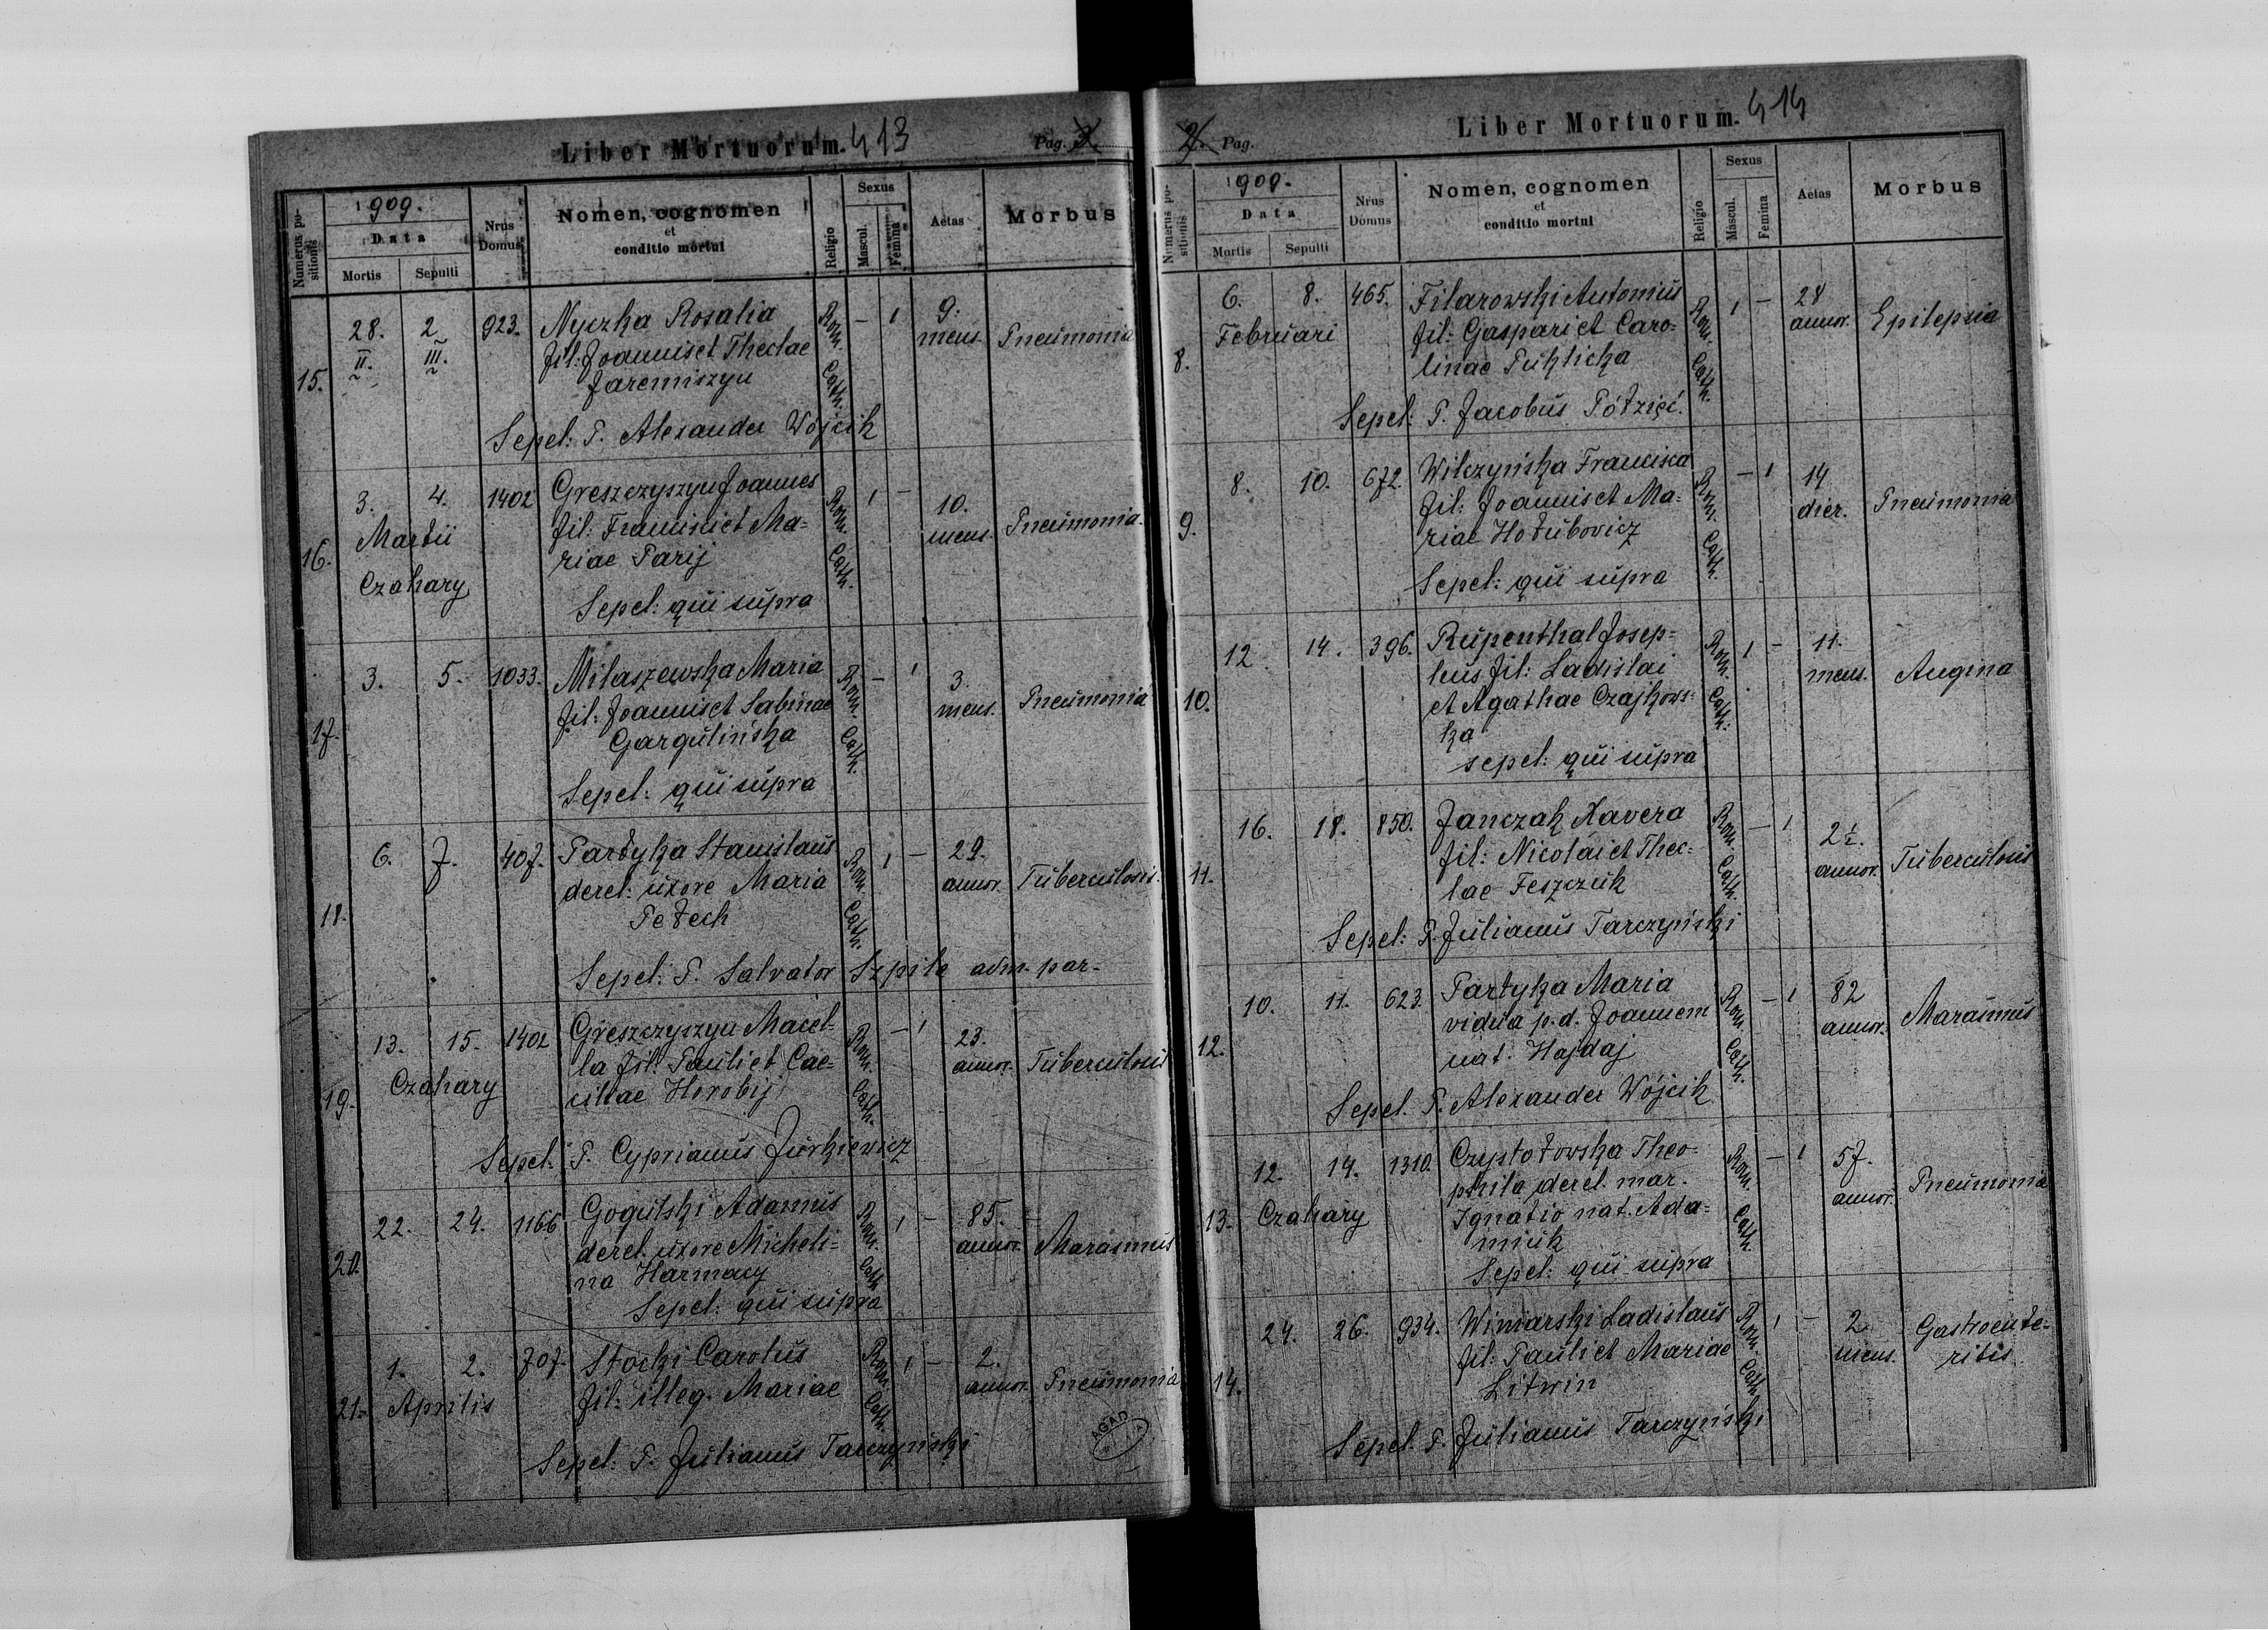 Liber Mortuorum. 413
Pag. 3.
Numerus positionis
1909.
Data
Mortis
Sepulti
Nrus Domus
Nomen, cognomen
et
conditio mortui
Religio
Sexus
Mascul.
Femina
Aetas
Morbus
15. 28. II. 2 III. 923. Nyczka Rosalia Rom. Cath. — 1 9. mens. Pneumonia
fil: Joannis et Theclae
Jaremiszyn
Sepel: P. Alexander Wójcik
16. 3. 4. 1402 Greszczyszyn Joannes Rom. Cath. 1 — 10. mens. Pneumonia.
Martii fil: Francisci et Ma=
Czahary riae Parij
Sepel: qui supra
17. 3. 5. 1033. Milaszewska Maria Rom. Cath. — 1 3. mens. Pneumonia
fil: Joannis et Sabinae
Gargulińska
Sepel: qui supra
18. 6. 7. 407. Partyka Stanislaus Rom. Cath. 1 — 29. annor. Tuberculosis.
derel: uxore Maria
Petech
Sepel: P. Salvator Szpila adm. par.
19. 13. 15. 1402 Greszczyszyn Marcel= Rom. Cath. — 1 23. annor. Tuberculosis
Czahary la fil: Pauli et Cae=
ciliae Horobij
Sepel: P. Cyprianus Jurkiewicz
20. 22. 24. 1166 Gogulski Adamus Rom. Cath. 1 — 85. annor. Marasmus
derel. uxore Micheli=
na Harmacy
Sepel: qui supra
21. 1. 2. 707. Stocki Carolus Rom. Cath. 1 — 2. annor. Pneumonia
Aprilis fil: illeg. Mariae
Sepel: P. Julianus Tarczyński
AGAD
2. Pag.
Liber Mortuorum. 414
Numerus positionis
1909.
Data
Mortis
Sepulti
Nrus Domus
Nomen, cognomen
et
conditio mortui
Religio
Sexus
Mascul.
Femina
Aetas
Morbus
8. 6. 8. 465. Filarowski Antonius Rom. Cath. 1 — 28 annor. Epilepsia
Februari fil: Gaspari et Caro=
linae Puklicka
Sepel: P. Jacobus Półzięć.
9. 8. 10. 672. Wilczyńska Francisca Rom. Cath. — 1 14 dier. Pneumonia
fil: Joannis et Ma=
riae Hołubowicz
Sepel: qui supra
10. 12. 14. 396. Rupenthal Josep= Rom. Cath. 1 — 11. mens. Angina
hus fil: Ladislai
et Agathae Czajkows=
ka
sepel: qui supra
11. 16. 18. 850. Janczak Xavera Rom. Cath. — 1 2½. annor. Tuberculosis
fil: Nicolai et Thec=
lae Feszczuk
Sepel: P. Julianus Tarczyński
12. 10. 11. 623. Partyka Maria Rom. Cath. — 1 82 annor. Marasmus
vidua p.d. Joannem
nat. Hajdaj
Sepel. P. Alexander Wójcik
13. 12. 14. 1310. Czyptołowska Theo= Rom. Cath. — 1 57. annor. Pneumonia
Czahary phila derel. mar.
Ignatio nat. Ada=
miuk
Sepel: qui supra
14. 24. 26. 934. Winiarski Ladislaus Rom. Cath. 1 — 2 mens. Gastroente=
ritis
fil: Pauli et Mariae
Litwin
Sepel. P. Julianus Tarczyński